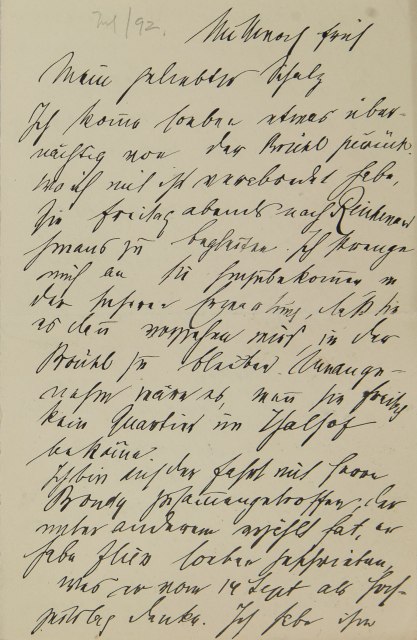 Jul/92.
Mittwoch früh
Mein geliebter Schatz
Ich komme soeben etwas über-
nächtig von der Brühl zurück,
wo ich mit verabredet habe,
Sie Freitag abends nach Reichenau
hinaus zu begleiten. Ich strenge
mich an Sie in
der sicheren Erwartung, daß Sie
es dann mir, in der
Brühl zu bleiben. Unange-
nehm wäre es, wenn Sie Freitag
kein Quartier im Thalhof
bekäme.
Ich bin auf der Fahrt mit Herrn
Bondy zusammengetroffen, der
unter anderem erzählt hat, er
habe Fließ soeben geschrieben,
was er vom 14 Sept als Hoch-
zeitstag denke. Ich habe ihm